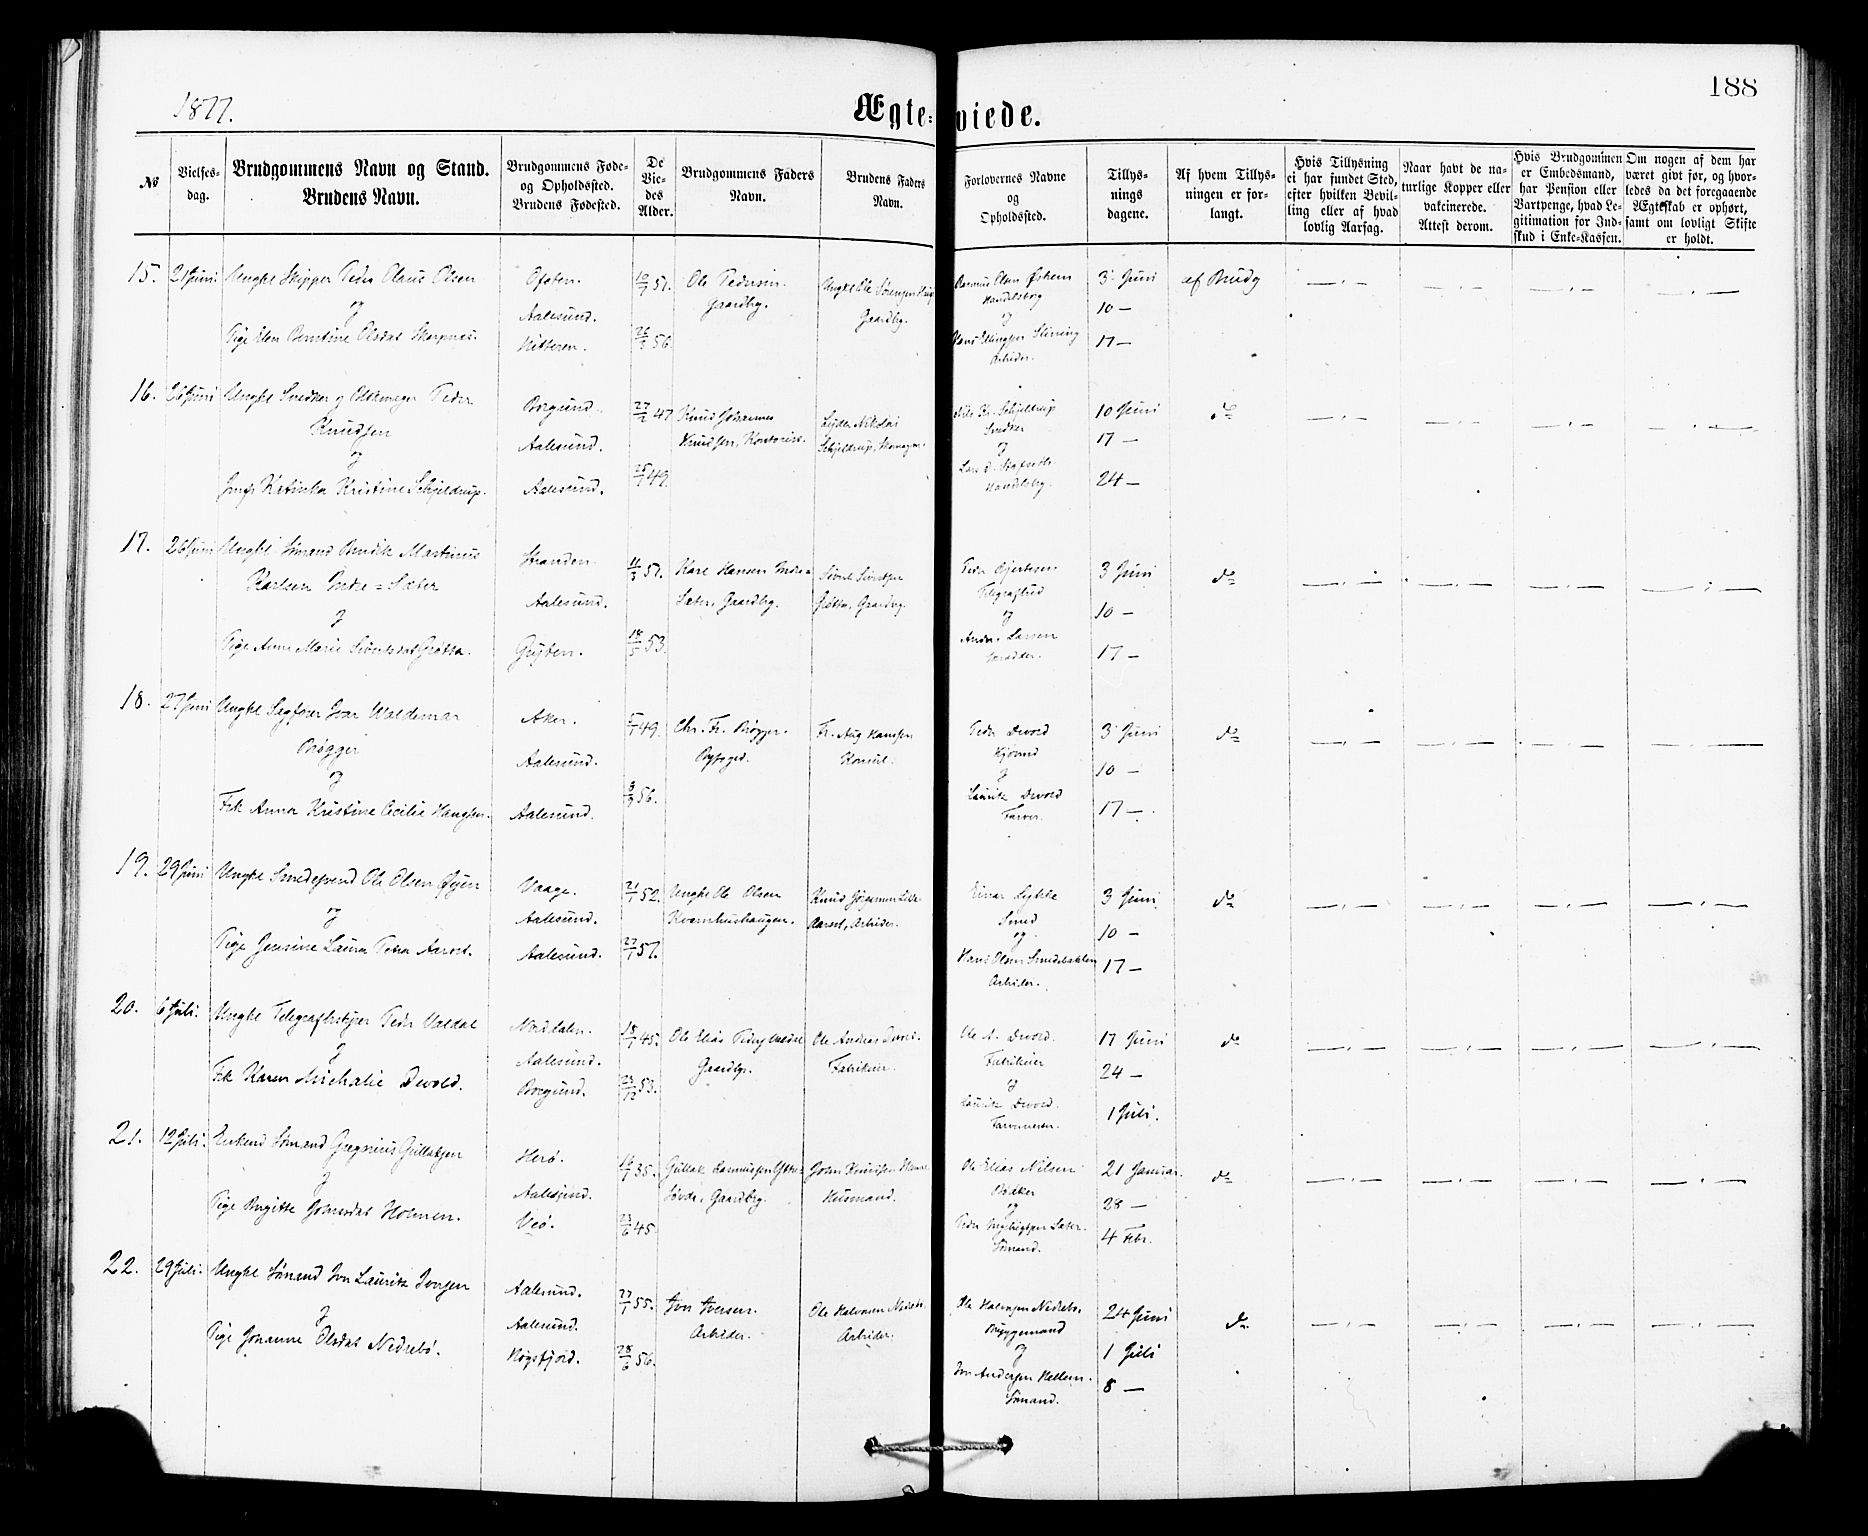 1877.
Ægteviede.
188
No
Vielses-dag.
Brudgommens Navn og Stand.
Brudens Navn.
Brudgommens Føde- og Opholdssted.
Brudens Fødested.
De Vie-des Alder.
Brudgommens Faders Navn.
Brudens Faders Navn.
Forlovernes Navne og Opholdssted.
Tillys-nings dagene.
Af hvem Tillys-ningen er for-langt.
Hvis Tillysning ei har fundet Sted, efter hvilken Bevil-ling eller af hvad lovlig Aarsag.
Naar havt de na-turlige Kopper eller vakcinerede. Attest derom.
Hvis Brudgommen er Embedsmand, har Pension eller Vartpenge, hvad Le-gitimation for Ind-skud i Enke-Kassen.
Om nogen af dem har været givt før, og hvor-ledes da det foregaaende Ægteskab er ophørt, samt om lovligt Skifte er holdt.
15. 21 Juni Ungkl Skipper Peder Claus Olsen
og
Pige Elen Berntine Olsdat Skarpnes.
Ofoten.
Aalesund.
Hitteren.
10/7 51.
26/3 56.
Ole Pedersen
Gaardbg.
Gaardbg.
Handelsbg
og
Arbeider.
3 Juni
10 —
17 —
af Brudg
16. 26 Juni Ungkl Snedker og Peder
Knudsen
og
Jmfr Katinka Kristine Schjeldrup.
Borgund.
Aalesund.
Aalesund.
27/2 47
25/1 49.
Knud Johannes
Knudsen, Kontorist.
Lyder Nikolai
Schjeldrup, Skomager.
Schjeldrup
Snedker
og
Handelsbg.
10 Juni
17 —
24 —
do
17. 26 Juni Ungkl Sømand Bendik Martinus
Karlsen Indre-Sæter
og
Pige Anne Marie Sivertsdat Grøtta.
Stranden.
Aalesund.
Gryten.
11/3 51.
18/5 53.
Karl Hansen Indre-
Sæter, Gaardbg.
Sivert Sivertsen
Grøtta, Gaardbg.
Peder
og
Andr. Larsen
Skrædder.
3 Juni
10 —
17 —
do
18. 27 Juni Ungkl Sagfører Ivar Waldemar
Brøgger
og
Frk Anna Kristine Cecilie Hansen.
Aker.
Aalesund.
Aalesund.
5/1 49.
3/9 56.
Chr. Fr. Brøgger.
Byfoged.
Fr. Aug Hansen
Konsul.
Peder Devold
Kjøbmd
og
Lauritz Devold
Farver.
3 Juni
10 —
17 —
do
19. 29 Juni Ungkl Smedesvend Ole Olsen Øyen
og
Pige Jensine Laura Petra Aarset.
Vaage.
Aalesund.
Aalesund.
21/1 52.
27/1 57.
Ungkl Ole Olsen
Kvernhushaugen.
Knud Jørgensen
Aarset, Arbeider.
Einar Lykke
Smed
og
Hans Olsen Smedebakken
Arbeider.
3 Juni
10 —
17 —
do
20. 6 Juli. Ungkl Telegrafbestyrer Peder Valdal
og
Frk Karen Michalie Devold.
Norddalen.
Aalesund.
Borgund.
18/1 45.
23/12 53.
Ole Elias Pedersen Valdal
Gaardbg.
Ole Andreas Devold.
Fabrikeier.
Ole A. Devold.
Fabrikeier
og
Lauritz Devold.
17 Juni
24 —
1 Juli.
do
21. 12 Juli. Enkemd Sømand Gregorius Gullaksen
og
Pige Birgitte Johnsdat Holmen.
Herø.
Aalesund.
Veø.
16/7 35.
23/6 45.
Gullak Rasmussen Ytre-
Søvde, Gaardbg.
John Knudsen
Husmand.
Ole Elias Nilsen
Bødker
og
Peder Sæter.
Sømand.
21 Januar.
28 —
4 Febr.
do
22. 29 Juli. Ungkl Sømand Iver Lauritz Iversen
og
Pige Johanne Olsdat Nedrebø.
Aalesund.
Aalesund.
Høgsfjord.
27/1 55.
28/6 56.
Iver Iversen.
Arbeider.
Ole Halvorsen Nedrebø
Arbeider.
Ole Halvorsen Nedrebø,
Bryggemand
og
Iver Andersen Hellem.
Sømand.
24 Juni
1 Juli
8 —
do